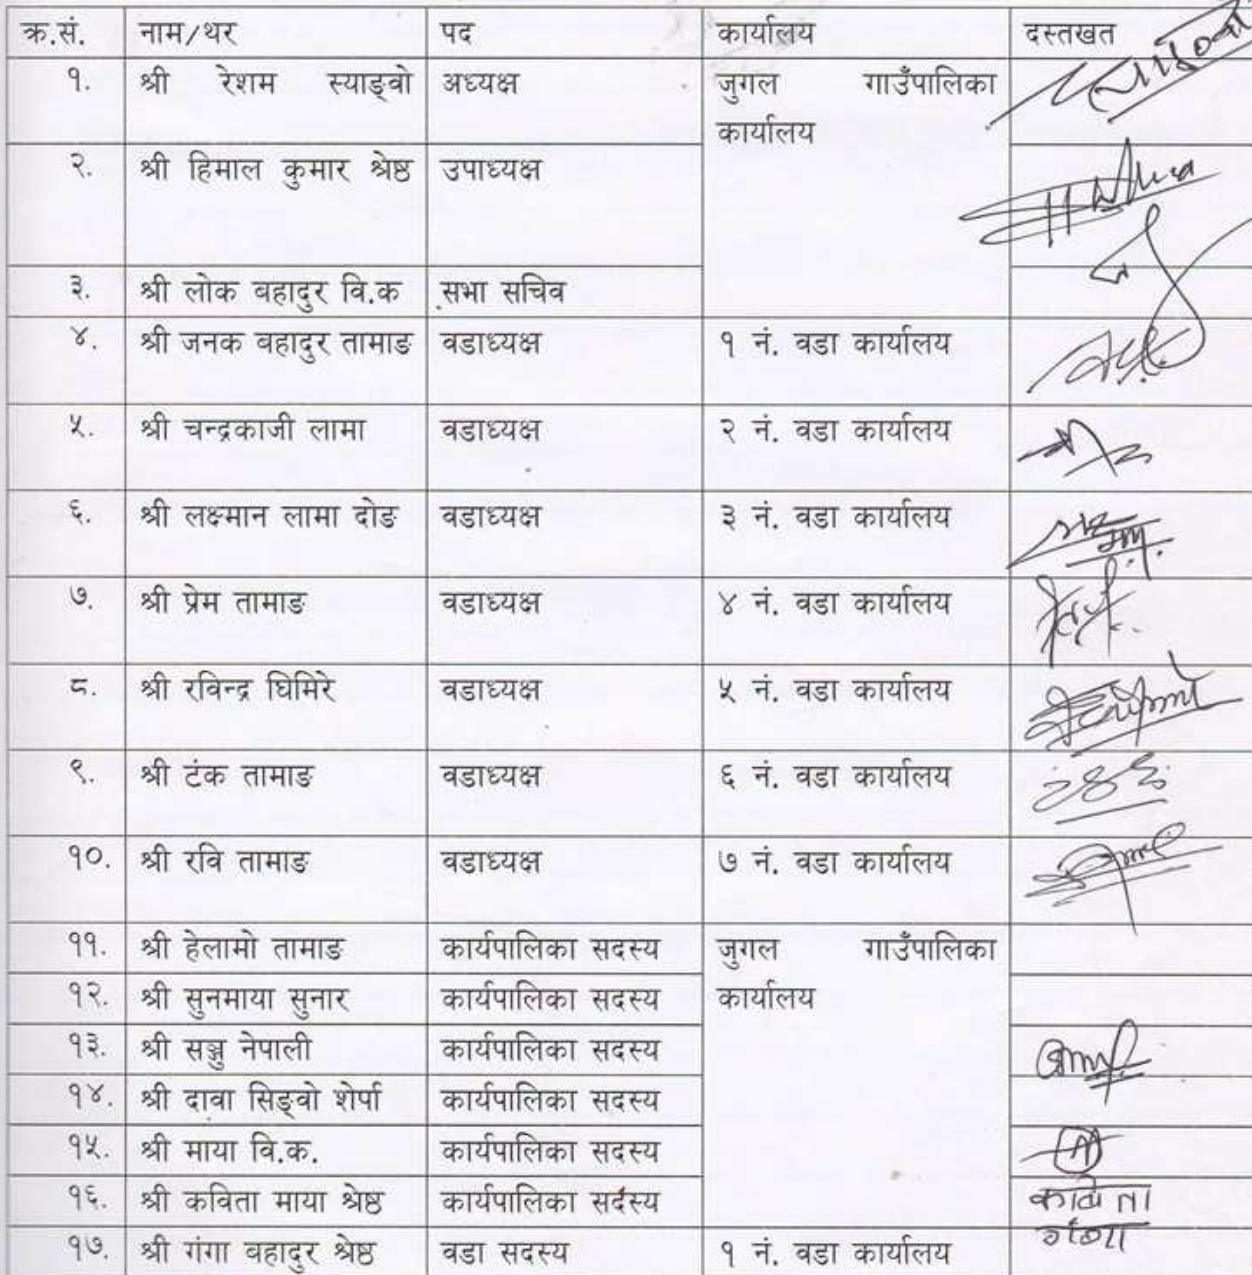 क्र.सं. नाम/थर पद कार्यालय दस्तखत
१. श्री रेशम स्याङ्वो अध्यक्ष जुगल गाउँपालिका
कार्यालय
२. श्री हिमाल कुमार श्रेष्ठ उपाध्यक्ष
३. श्री लोक बहादुर वि.क सभा सचिव
४. श्री जनक बहादुर तामाङ वडाध्यक्ष १ नं. वडा कार्यालय
५. श्री चन्द्रकाजी लामा वडाध्यक्ष २ नं. वडा कार्यालय
६. श्री लक्ष्मान लामा दोङ वडाध्यक्ष ३ नं. वडा कार्यालय
७. श्री प्रेम तामाङ वडाध्यक्ष ४ नं. वडा कार्यालय
८. श्री रविन्द्र घिमिरे वडाध्यक्ष ५ नं. वडा कार्यालय
९. श्री टंक तामाङ वडाध्यक्ष ६ नं. वडा कार्यालय
१०. श्री रवि तामाङ वडाध्यक्ष ७ नं. वडा कार्यालय
११. श्री हेलामो तामाङ कार्यपालिका सदस्य जुगल गाउँपालिका
१२. श्री सुनमाया सुनार कार्यपालिका सदस्य कार्यालय
१३. श्री सञ्जु नेपाली कार्यपालिका सदस्य
१४. श्री दावा सिङ्वो शेर्पा कार्यपालिका सदस्य
१५. श्री माया वि.क. कार्यपालिका सदस्य
१६. श्री कविता माया श्रेष्ठ कार्यपालिका सदस्य
१७. श्री गंगा बहादुर श्रेष्ठ वडा सदस्य १ नं. वडा कार्यालय